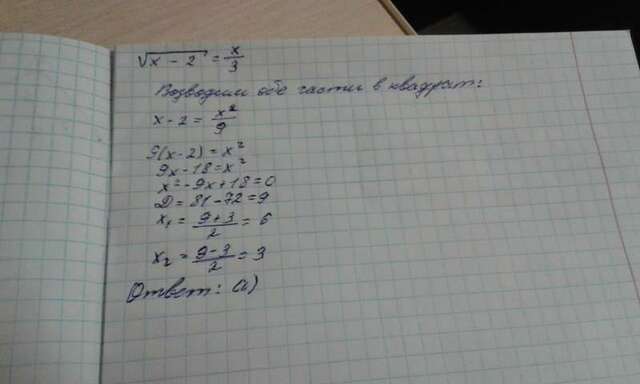 √x - 2 = x/3
Возводим обе части в квадрат:
x - 2 = x²/9
9(x-2) = x²
9x - 18 = x²
x² - 9x + 18 = 0
D = 81 - 72 = 9
x₁ = (9+3)/2 = 6
x₂ = (9-3)/2 = 3
Ответ: а)